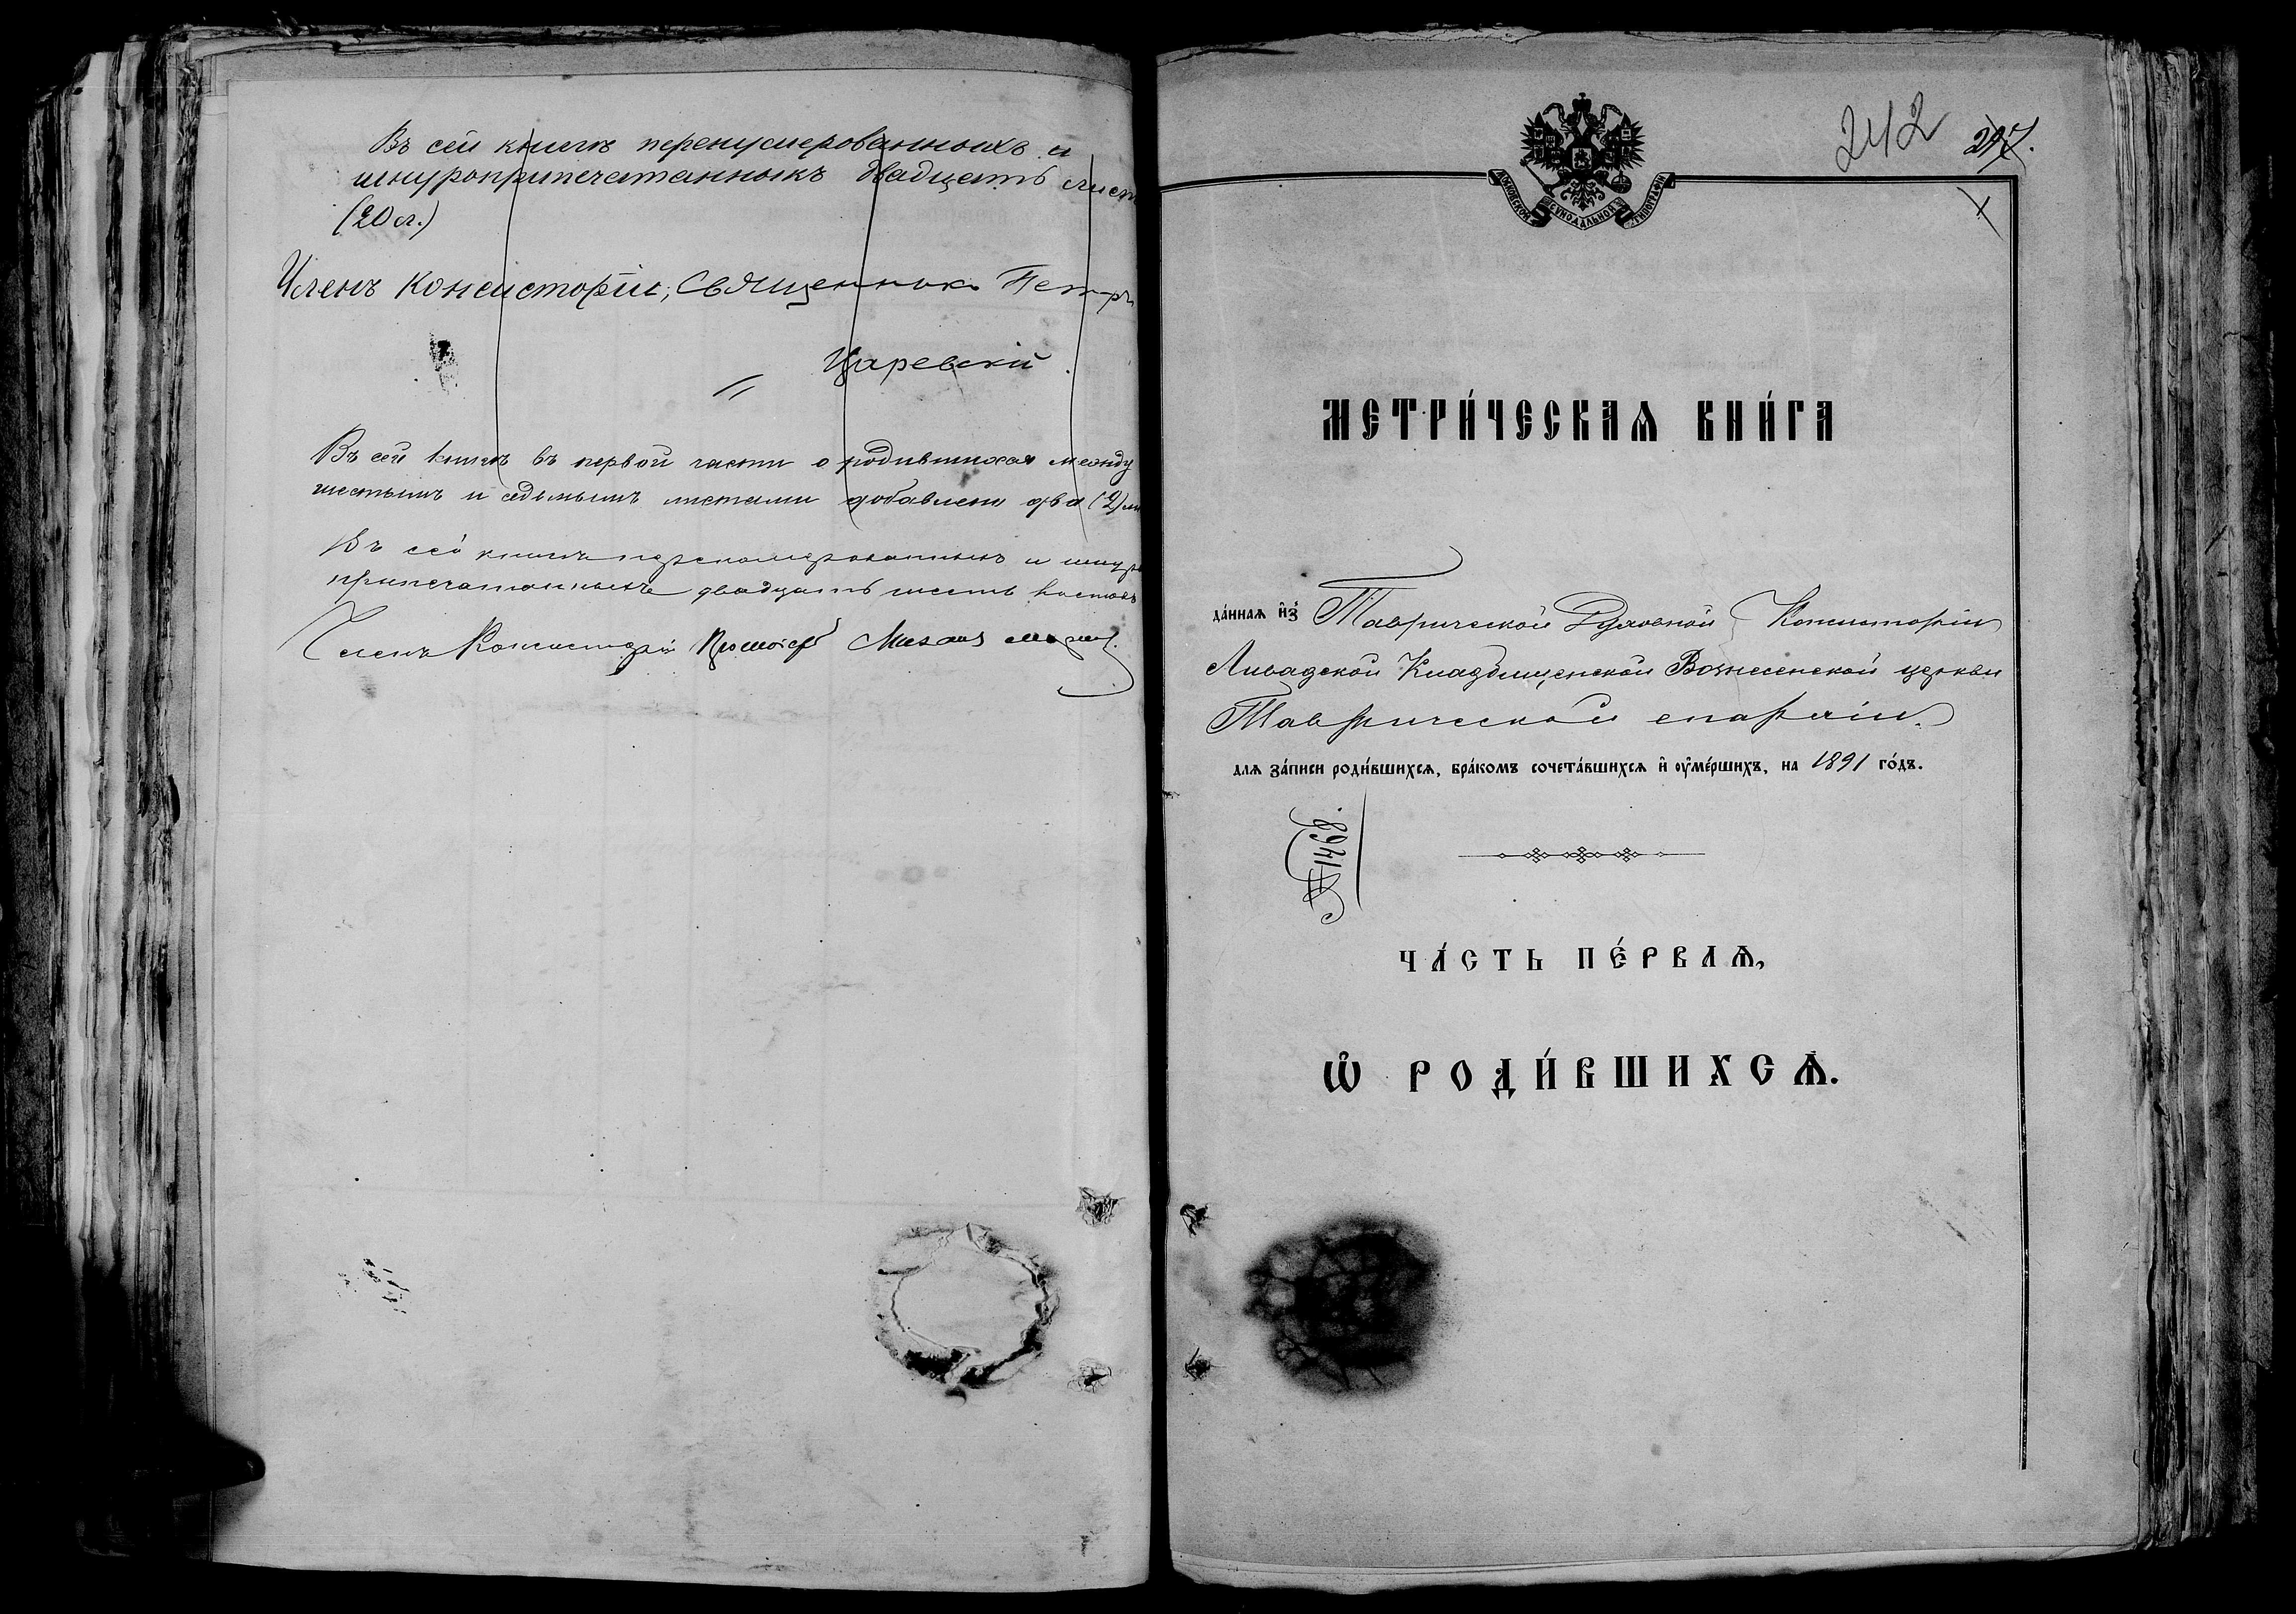 Въ сей книгѣ перенумерованныхъ и
шнуроприпечатанныхъ двадцать лист
(20 л.)
Членъ Консисторіи, Священникъ Петръ
Царевскій
Въ сей книгѣ въ первой части о родившихся между
шестымъ и седьмымъ листами добавлены два (2) ли
Въ сей книгѣ перенумерованныхъ и шнуро
припечатанныхъ двадцать шесть листовъ
Членъ Консисторіи Протоіер Михаилъ
242 217.
МОСКОВСКОЙ СѴНОДАЛЬНОЙ ТИПОГРАФІИ
МЕТРИ́ЧЕСКАѦ КНИ́ГА
да́ннаѧ и҆зъ Таврической Духовной Консисторіи
Ливадской Кладбищенской Вознесенской церкви
Таврической епархіи.
для за́писи роди́вшихсѧ, бра́комъ сочета́вшихсѧ и҆ ᲂу҆ме́ршихъ, на 1891 го́дъ.
№ 1498.
ЧА́СТЬ ПЕ́РВАѦ,
Ѽ РОДИ́ВШИХСѦ.